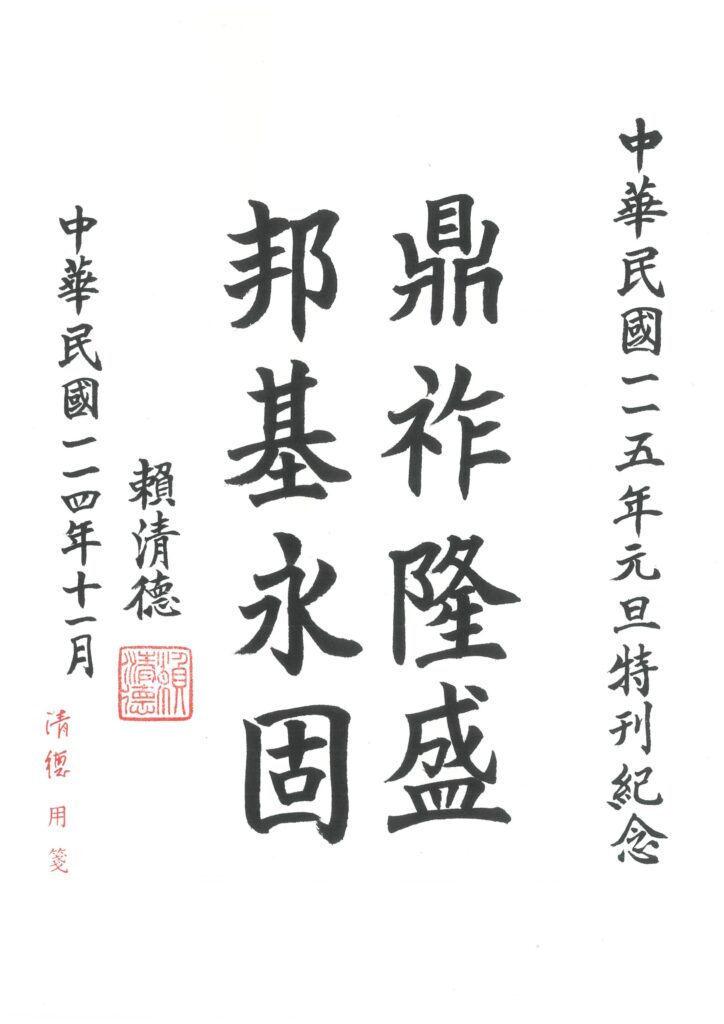 中華民國一一五年元旦特刊紀念
鼎祚隆盛
邦基永固
賴清德
賴清德
中華民國一一四年十一月
清德用箋